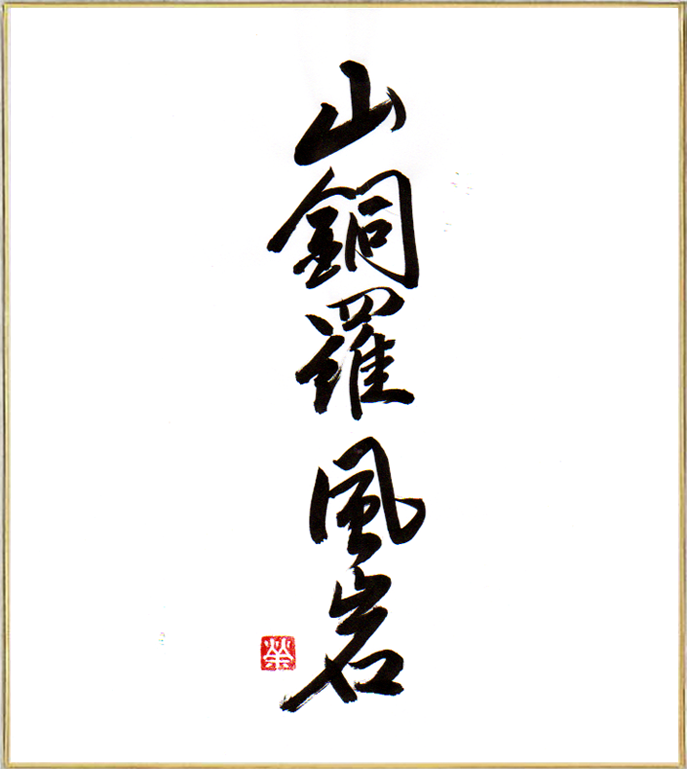 山銅羅風岩
榮